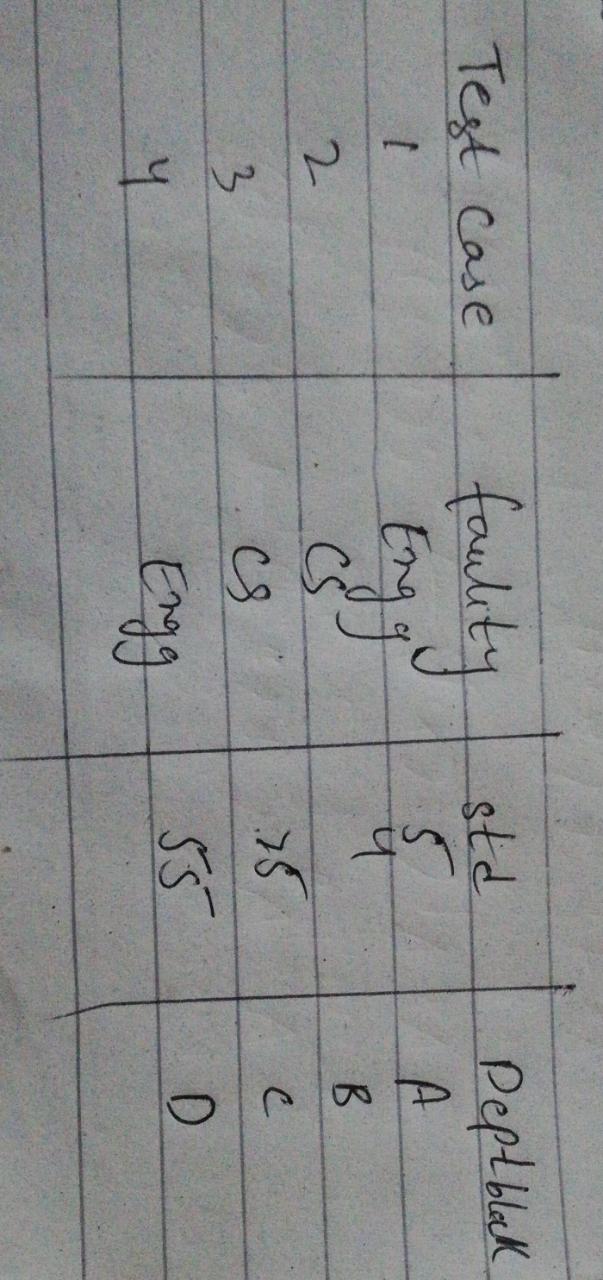 Test Case faulity std Deptblak
1 Engg 5 A
2 CS 4 B
3 CS 25 C
4 Engg 55 D